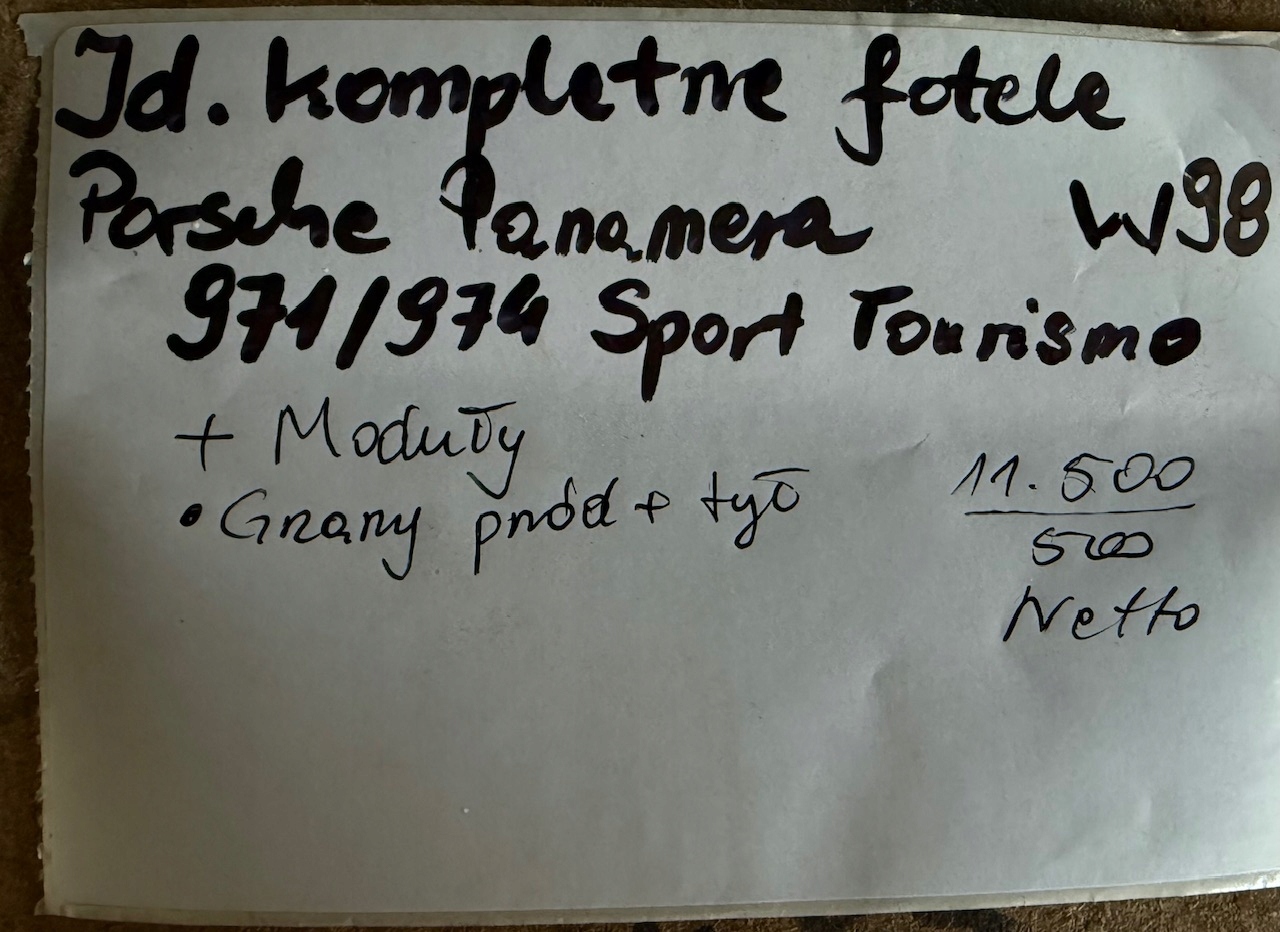 Id. kompletne fotele
Porsche Panamera W98
971/974 Sport Tourismo
+ Moduły
• Grzany przód + tył
11.500
500
Netto